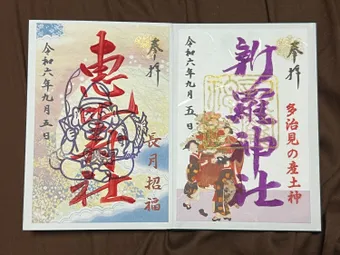 奉拝
新羅神社
多治見の産土神
令和六年九月五日
奉拝
恵比寿神社
長月招福
令和六年九月五日